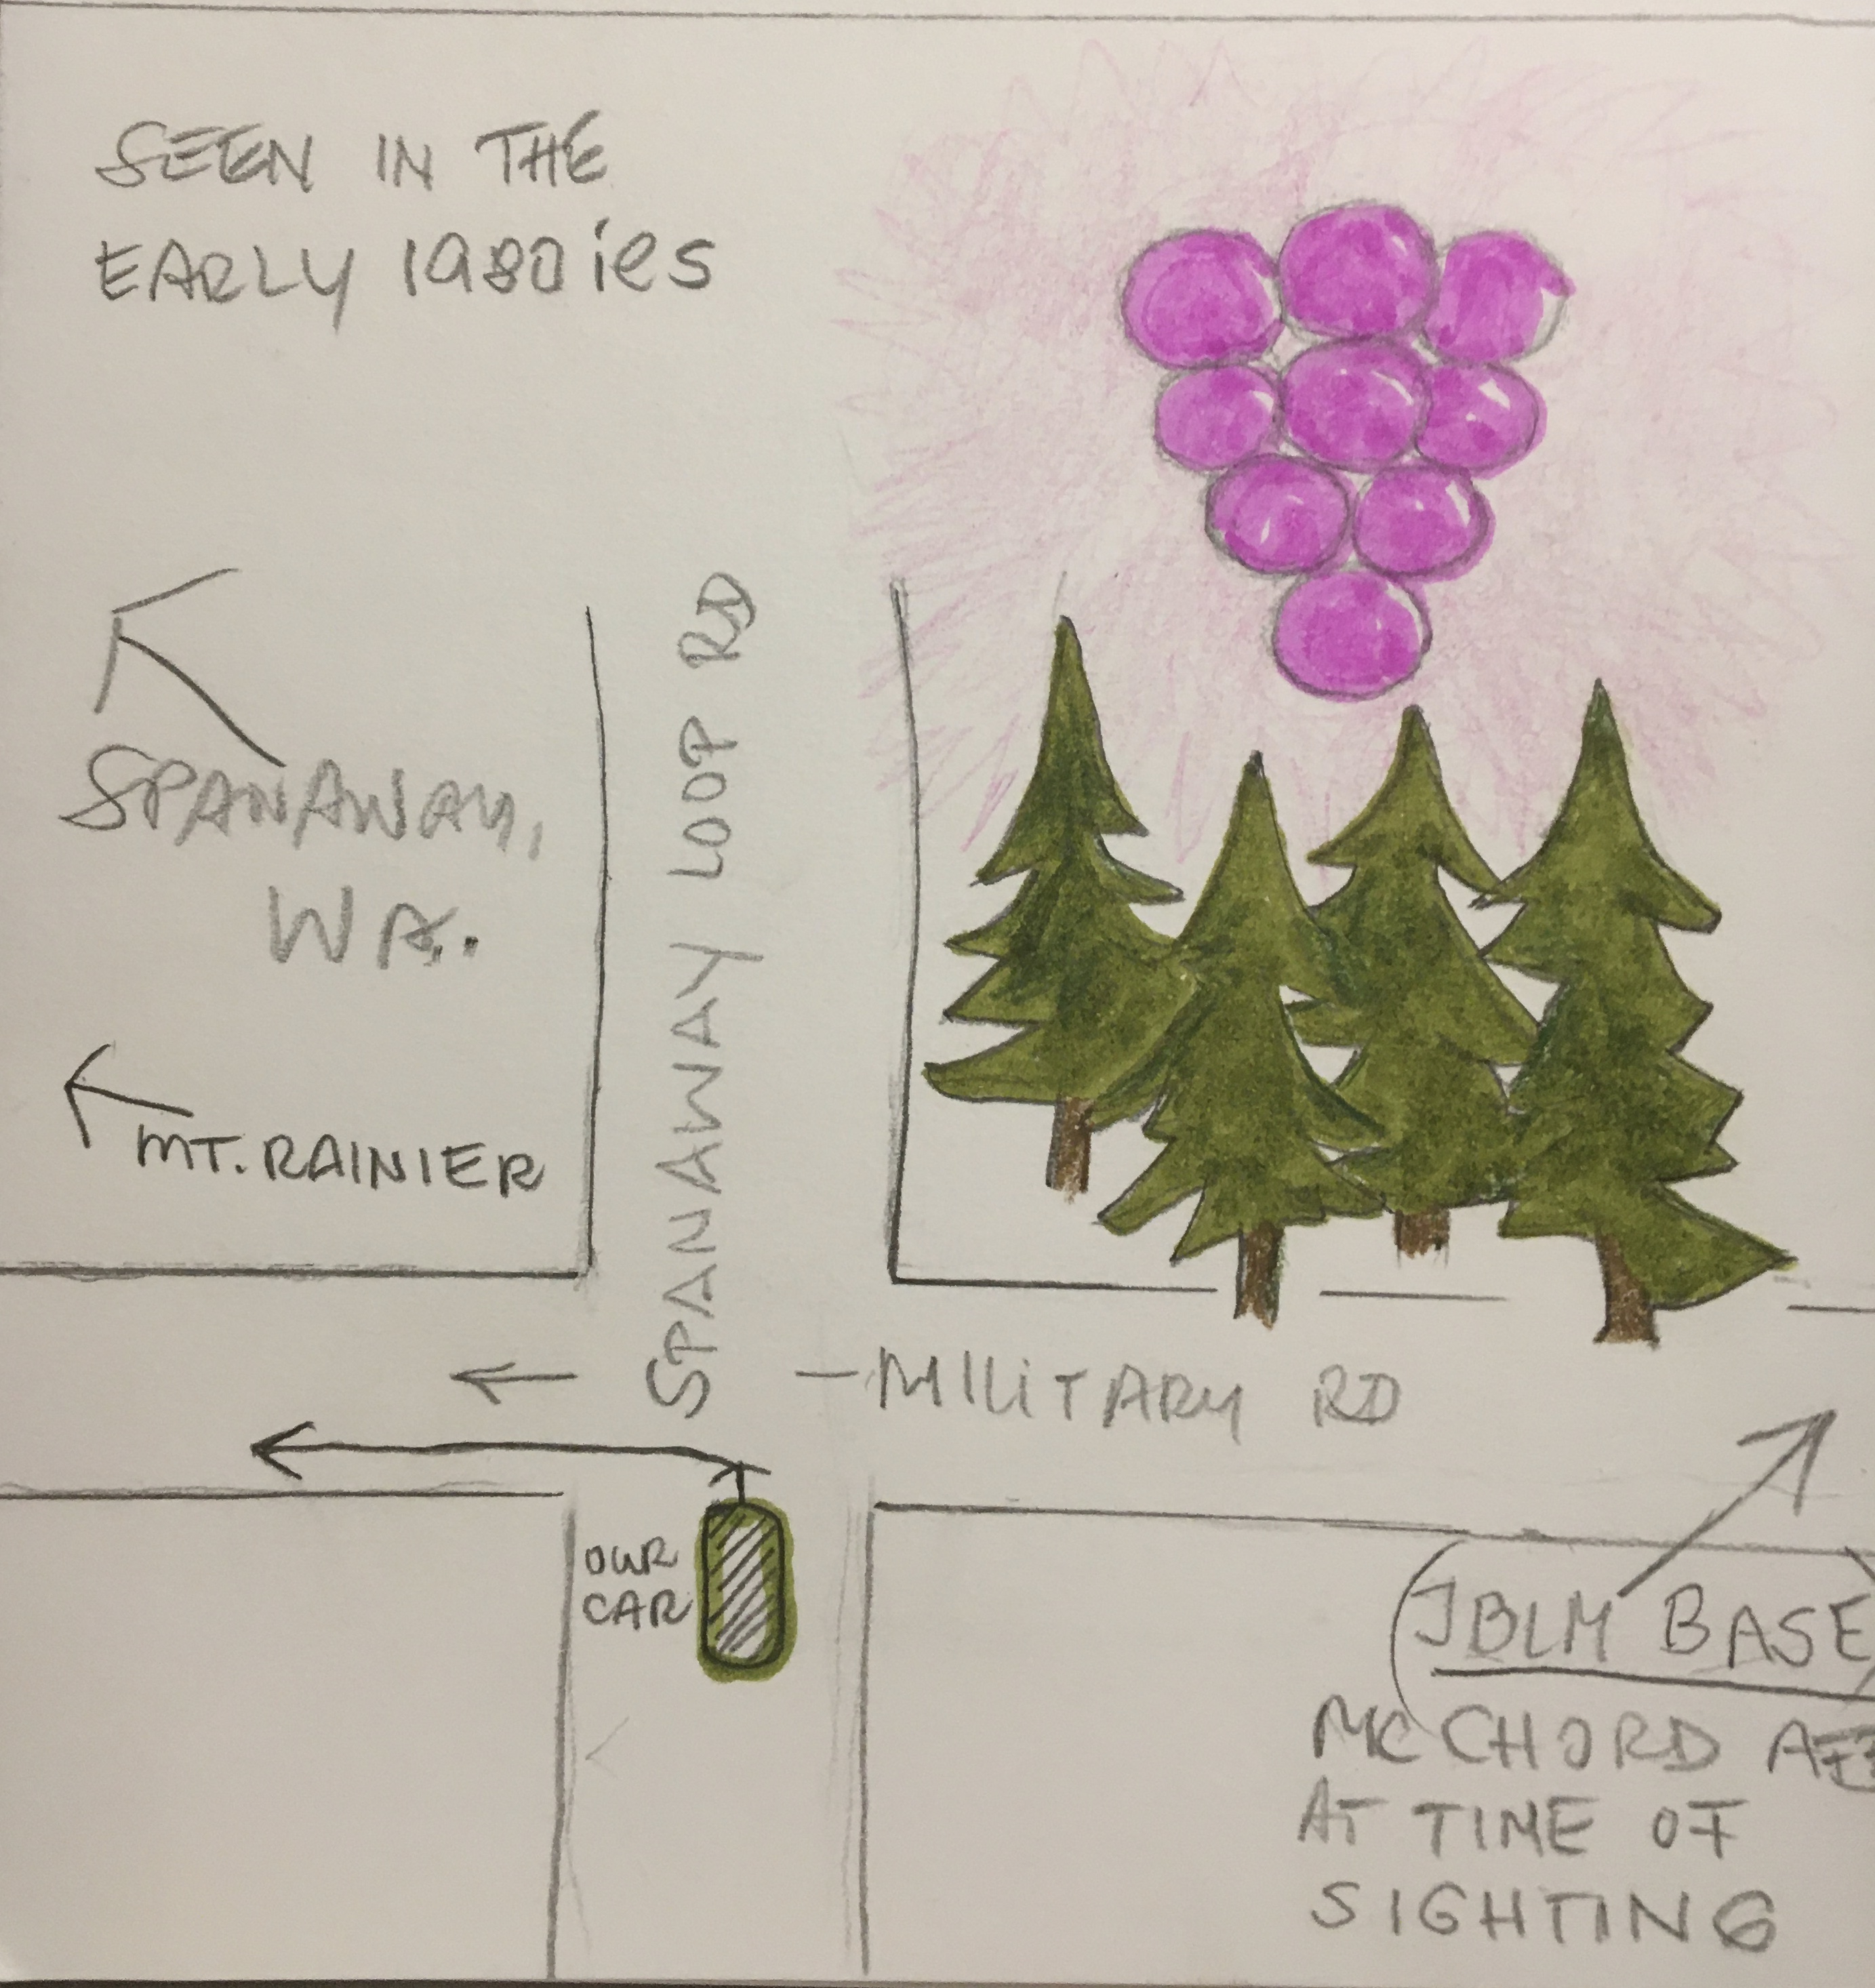 SEEN IN THE
EARLY 1980ies
SPANAWAY,
WA.
MT. RAINIER
SPANAWAY LOOP RD
MILITARY RD
OUR
CAR
(JBLM BASE)
MCCHORD
AT TIME OF
SIGHTING